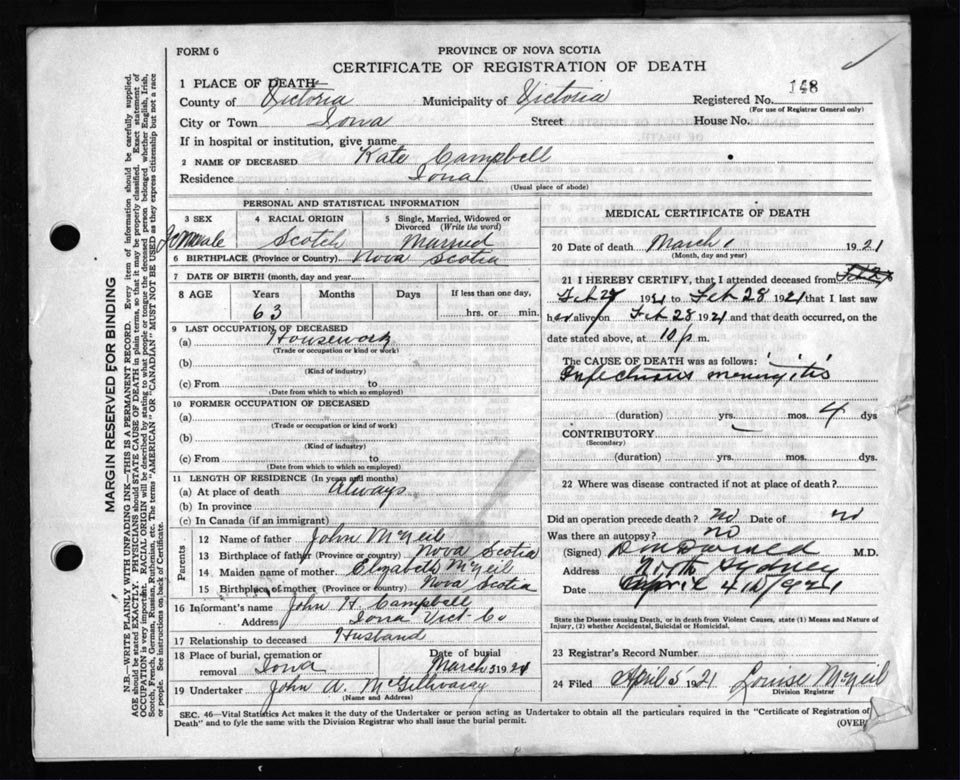 FORM 6
PROVINCE OF NOVA SCOTIA
CERTIFICATE OF REGISTRATION OF DEATH
1 PLACE OF DEATH—
County of Victoria Municipality of Victoria Registered No. 148
(For use of Registrar General only)
City or Town Iona Street House No.
If in hospital or institution, give name
2 NAME OF DECEASED Kate Campbell
Residence Iona
(Usual place of abode)
PERSONAL AND STATISTICAL INFORMATION
3 SEX 4 RACIAL ORIGIN 5 Single, Married, Widowed or Divorced (Write the word)
Female Scotch Married
6 BIRTHPLACE (Province or Country) Nova Scotia
7 DATE OF BIRTH (month, day and year)
8 AGE Years Months Days If less than one day,
63 hrs. or min.
9 LAST OCCUPATION OF DECEASED
(a) Housework
(Trade or occupation or kind or work)
(b)
(Kind of industry)
(c) From to
(Date from which to which so employed)
10 FORMER OCCUPATION OF DECEASED
(a)
(Trade or occupation or kind of work)
(b)
(Kind of industry)
(c) From to
(Date from which to which so employed)
11 LENGTH OF RESIDENCE (In years and months)
(a) At place of death always
(b) In province
(c) In Canada (if an immigrant)
Parents
12 Name of father John McNeil
13 Birthplace of father (Province or country) Nova Scotia
14 Maiden name of mother Elizabeth McNeil
15 Birthplace of mother (Province or country) Nova Scotia
16 Informant's name John H. Campbell
Address Iona Vict. Co
17 Relationship to deceased Husband
18 Place of burial, cremation or removal Iona Date of burial March 3 1921
19 Undertaker John A. McGillivarey
(Name and Address)
MEDICAL CERTIFICATE OF DEATH
20 Date of death March 1 1921
(Month, day and year)
21 I HEREBY CERTIFY, that I attended deceased from
Feb 27 1921 to Feb 28 1921 that I last saw
her alive on Feb 28 1921 and that death occurred, on
date stated above, at 10 p m.
The CAUSE OF DEATH was as follows:
Infectious meningitis
(duration) yrs. mos. 4 dys
CONTRIBUTORY —
(Secondary)
(duration) yrs. mos. dys.
22 Where was disease contracted if not at place of death?
Did an operation precede death? no Date of no
Was there an autopsy? no
(Signed) M.D.
Address North Sydney
Date April 4th 1921
State the Disease causing Death, or in death from Violent Causes, state (1) Means and Nature of
Injury, (2) whether Accidental, Suicidal or Homicidal.
23 Registrar's Record Number
24 Filed April 5 1921 Louise McNeil
Division Registrar
SEC. 46—Vital Statistics Act makes it the duty of the Undertaker or person acting as Undertaker to obtain all the particulars required in the "Certificate of Registration of
Death" and to fyle the same with the Division Registrar who shall issue the burial permit.
(OVER)
MARGIN RESERVED FOR BINDING
N.B.—WRITE PLAINLY WITH UNFADING INK—THIS IS A PERMANENT RECORD. Every item of information should be carefully supplied.
AGE should be stated EXACTLY. PHYSICIANS should STATE CAUSE OF DEATH in plain terms, so that it may be properly classified. Exact statement of
OCCUPATION is very important. RACIAL ORIGIN will be described by stating to what people or tongue the deceased person belonged whether English, Irish,
Scotch, French, German, Russian, Ruthenian, etc. The terms "AMERICAN" or "CANADIAN" MUST NOT BE USED as they express citizenship but not a race
or people. See instructions on back of Certificate.